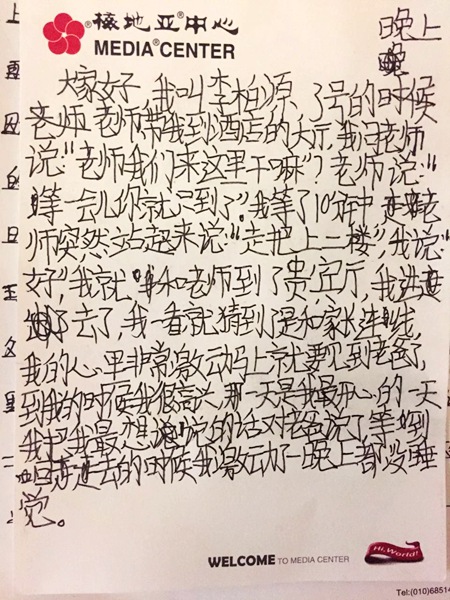 梅地亚®中心
MEDIA®CENTER
晚上
大家好 我叫李柏源 了号的时候
老师 老师带我到酒店的大厅，我问老师
说："老师我们来这里干嘛"？老师说："
等一会儿你就知到了"。我等了10分中 老
师突然站起来说："走把上二楼"，我说"
好"，我就 和老师到了贵宾厅，我进
了去了，我一看就猜到了是和家长连线，
我的心里非常激动马上就要见到老爸了，
到我的时候我很高兴 那一天是我最开心的一天
我把我最想说的话对老爸说了 等到
回去的时候我激动了一晚上都没睡
觉。
WELCOME TO MEDIA CENTER
Hi, World!
Tel:(010)68514
上
的
日
王
文
里